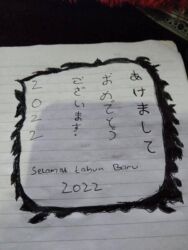 あけまして
おめでとう
ございます!
2022
Selamat tahun Baru
2022